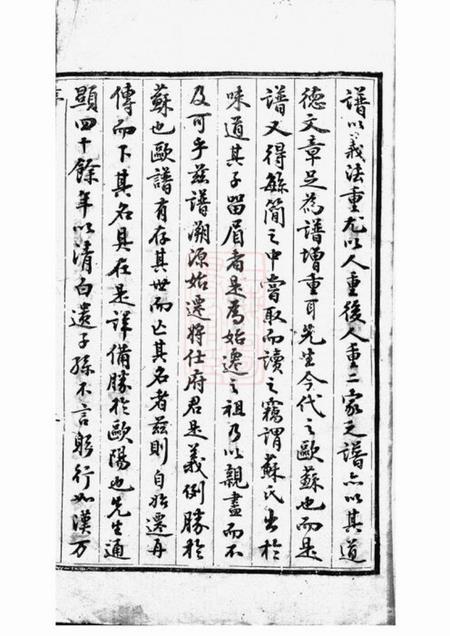 譜以義法重尤以人重後人重二家之譜亦以其道
德文章足為譜增重耳先生今代之歐蘇也而是
譜又得繇簡之中嘗取而讀之竊謂蘇氏出於
味道其子留眉者是為始遷之祖乃以親盡而不
及可乎茲譜溯源始遷將仕府君是義例勝於
蘇也歐譜有存其世而亡其名者茲則自始遷再
傳而下其名具在是詳備勝於歐陽也先生通
顯四十餘年以清白遺子孫不言躬行如漢万